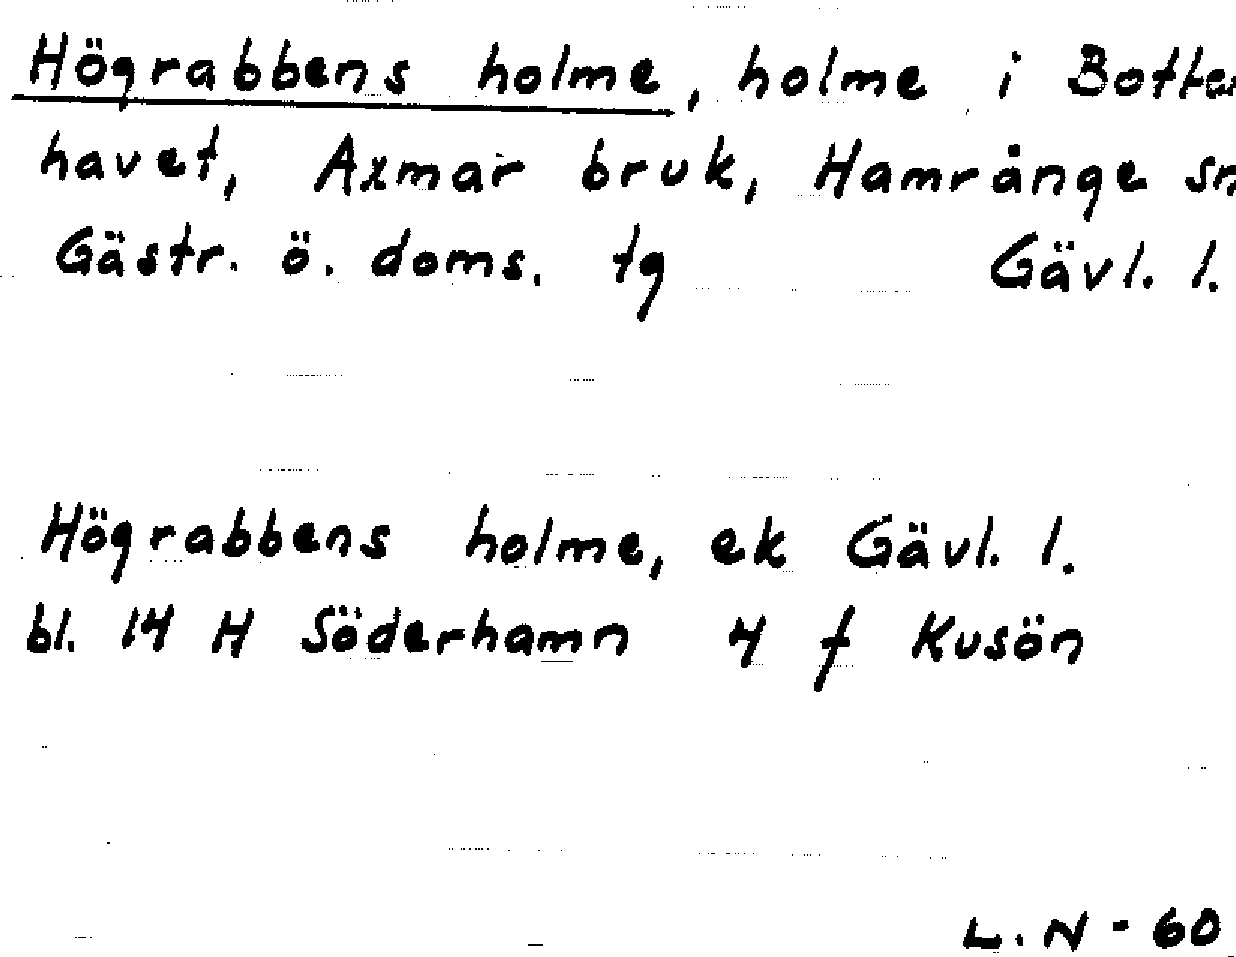 Högrabbens holme, holme i Botten
havet, Axmar bruk, Hamrånge sn
Gästr. ö. doms. tg Gävl. l.
Högrabbens holme, ek Gävl. l.
bl. 14 H Söderhamn 4 f Kusön
L. N - 60